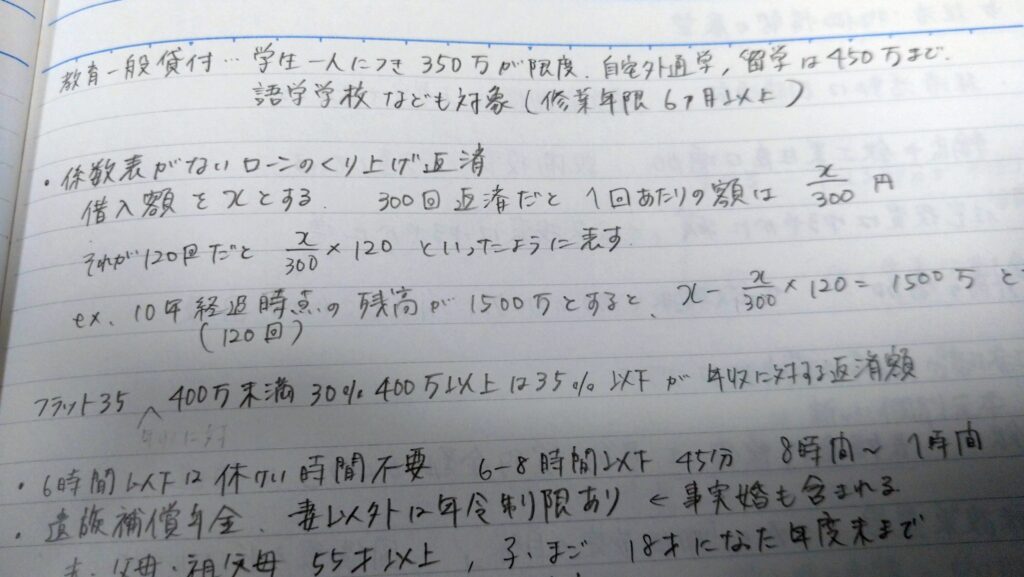 教育一般貸付… 学生一人につき 350万が限度. 自宅外通学, 留学は450万まで.
語学学校なども対象(修業年限6ヶ月以上)
・係数表がないローンのくり上げ返済
借入額をxとする. 300回返済だと 1回あたりの額は x/300 円
それが120回だと x/300 × 120 といったように表す
ex. 10年経過時点の残高が1500万とすると、x - x/300 × 120 = 1500万 と
(120回)
フラット35 400万未満30% 400万以上は35%以下が 年収に対する返済額
年収に対
・6時間以下は休けい時間不要 6-8時間以下 45分 8時間~ 1時間
・遺族補償年金. 妻以外は年令制限あり ← 事実婚も含まれる
夫・父母・祖父母 55才以上, 子・まご 18才になった年度末まで